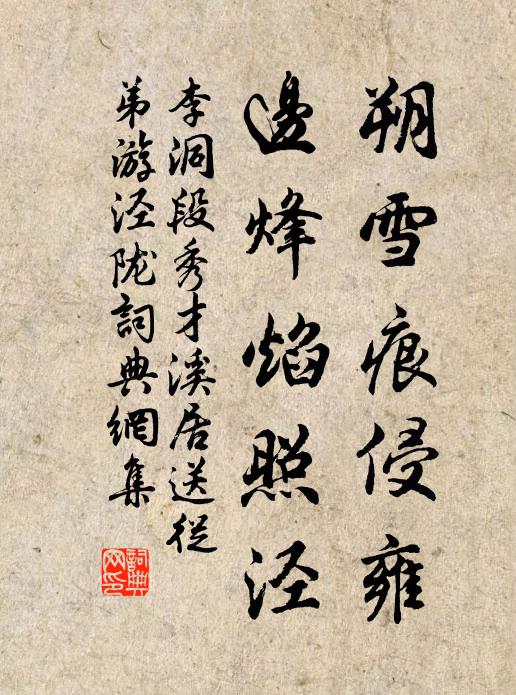 朔雪痕侵雍
邊烽焰照泾
李洞段秀才溪居送從
弟游泾陇詞典網集
詞典網印